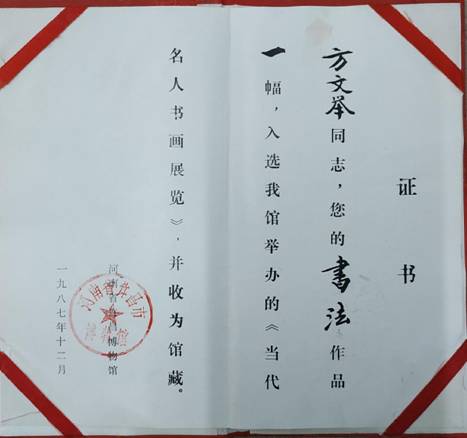 证书
方文举同志，您的书法作品
一幅，入选我馆举办的《当代
名人书画展览》，并收为馆藏。
河南省许昌博物馆
河南省许昌市
博物馆
一九八七年十二月